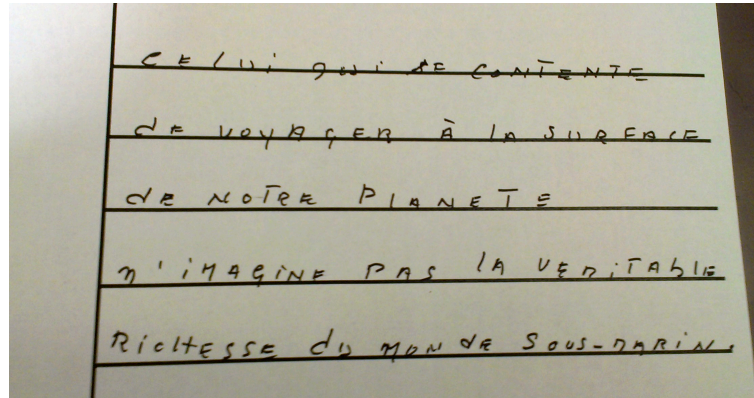 CELUi qui SE CONTENTE
dE VOYAGER À lA SURFACE
dE NOTRE PLANETE
n'iMAGiNE PAS lA VERiTAblE
RicHESSE dU MONdE SOUS-MARiN.